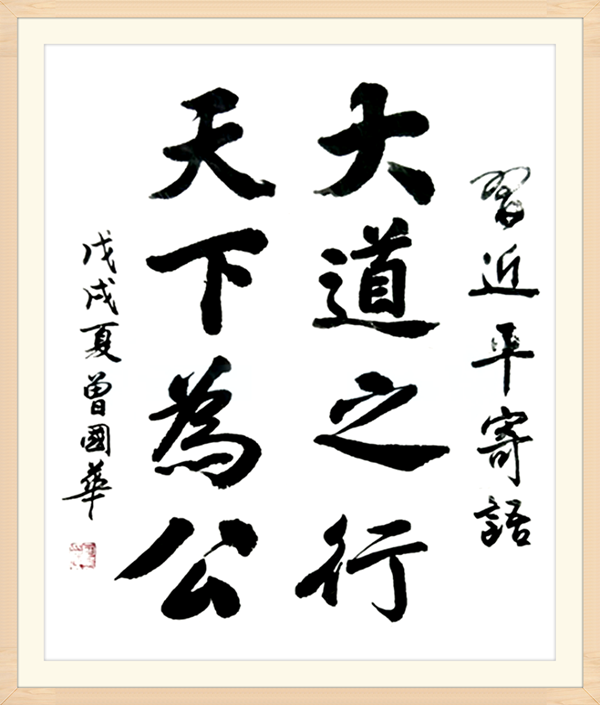 習近平寄語
大道之行
天下為公
戊戌夏曾國華